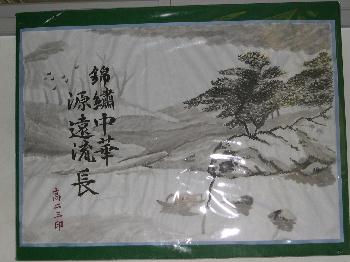 錦繡中華
源遠流長
高二三印